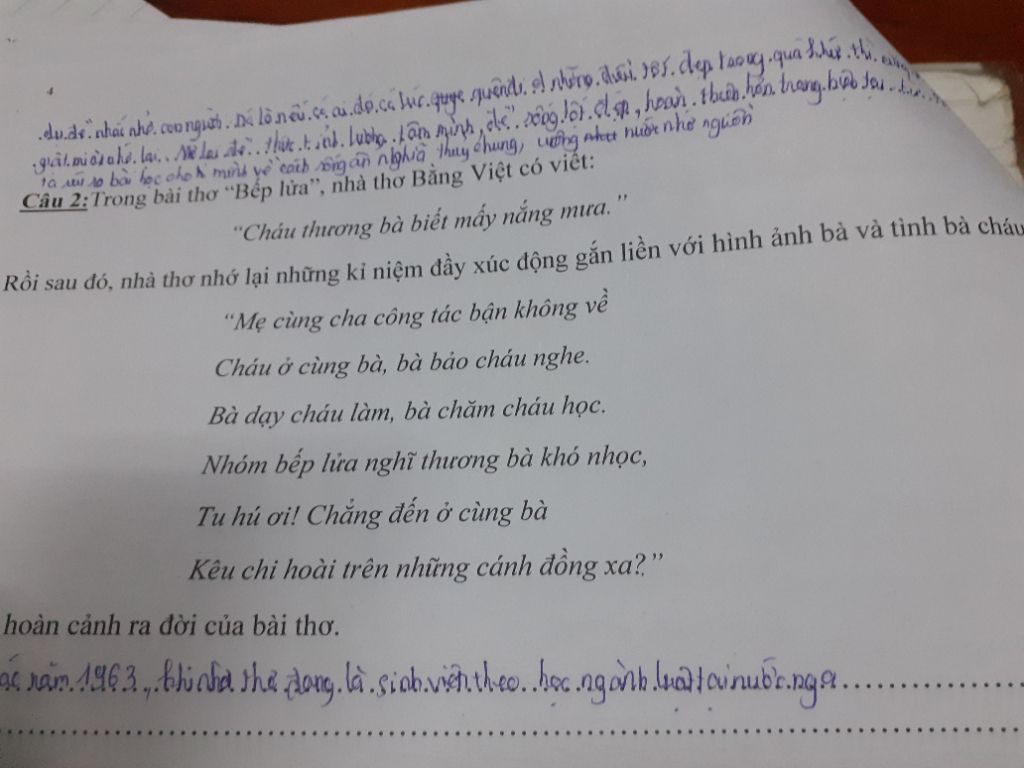 .du.để nhắc nhở con người. Nó là nếu có ai đó, có lúc quyên đi những điều tốt đẹp trong quá khứ thì cũng
giật mình nhớ lại.. Nhớ lại để.. thức tỉnh lương tâm mình, để sống tốt đẹp, hoàn thiện hơn trong hiện tại
rút ra bài học cho mình về cách sống ân nghĩa thủy chung, uống nước nhớ nguồn
Câu 2: Trong bài thơ “Bếp lửa”, nhà thơ Bằng Việt có viết:
“Cháu thương bà biết mấy nắng mưa.”
Rồi sau đó, nhà thơ nhớ lại những kỉ niệm đầy xúc động gắn liền với hình ảnh bà và tình bà cháu
“Mẹ cùng cha công tác bận không về
Cháu ở cùng bà, bà bảo cháu nghe.
Bà dạy cháu làm, bà chăm cháu học.
Nhóm bếp lửa nghĩ thương bà khó nhọc,
Tu hú ơi! Chẳng đến ở cùng bà
Kêu chi hoài trên những cánh đồng xa?”
hoàn cảnh ra đời của bài thơ.
ác năm 1963, khi nhà thơ đang là sinh viên theo học ngành luật tại nước nga